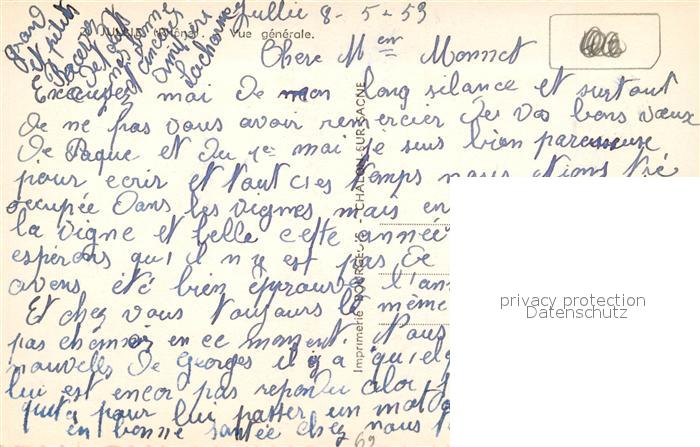 Jullié 8-5-59
2. JULLIÉ (Rhône). - Vue générale.
Chere Mem Monnet
Excusez mai de mon long silance et surtout
de ne pas vous avoir remercier de vos bons vœux
de Paque et du 1er mai je suis bien paresseuse
pour ecrir et tout ces temps nous etions tré
occupée dans les vignes mais en
la vigne et belle cette année
espérons qu'il n'y est pas de
avons été bien éprouvé l'an
Et chez vous toujours le même
pas chomoir en ce moment. Nous
nouvelles de Georges il y a quelq
lui est encor pas repondu alor
pour lui passer un mot
en bonne santée chez nous
grand
et petits
se
et
amitiers
Lachorme
Imprimerie BOURGEOIS - CHALON-SUR-SAÔNE
69
privacy protection
Datenschutz